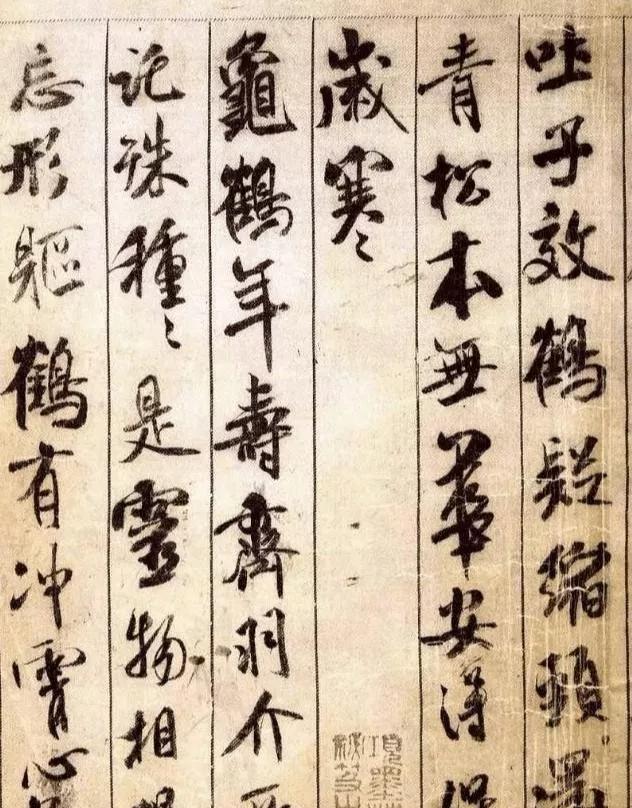 吐子效鶴疑縮頸還
青松本無華安得保
歲寒
龜鶴年壽齊羽介所
託殊種〻是靈物相得
忘形軀鶴有冲霄心